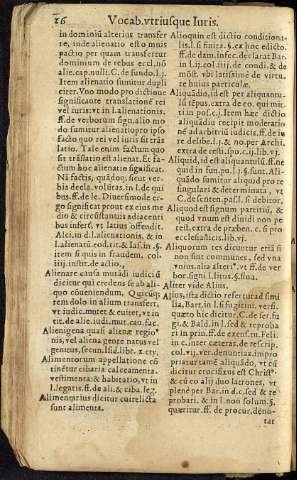 26 Vocab.vtriusque Iuris.
in dominiũ alterius transfer
re, unde alienatio est omnis
pactio per quam transfertur
dominium de rebus eccl. nõ
alie.cap.nulli. C. de fundo.l.j.
Item alienatio sumitur dupli
citer. Vno modo pro dictione
significante translationẽ rei
vel iuris: vt in l.alienationis.
ff.de verborum sign. alio mo
do sumitur alienatio pro ipso
facto quo rei vel iuris fit trãs
latio. Tale enim factum quo
fit trãslatio est alienat. Et fac
tum hoc alienatio significat.
Nã factis, quãdoq; sicut ver
bis decla. volũtas. in l. de qui
bus. ff. de le. Diuersimode er
go significat prout ex eius me
dio & circũstantiis adiacenti
bus infert, vt latius offendit.
Alci. in d.l.alienationis, & in
l.alienatũ. eod. tit. & Ias. in .§.
item si quis in fraudem. col.
iiij. instit. de actio,
Alienare causa mutãdi iudicij
dicitur qui credens se ab ali-
quo cõueniendum, Quicũq;
rem dolo in alium transfert,
vt iudic. mutet & euitet, vt in
tit. de alie. iudi. mut. cau. fac.
Alienigena quasi alienæ regio
nis, vel aliena gente natus vel
genitus, secun. Isid. libr. x. ety.
Alimentorum appellatione cõ
tinẽtur cibaria calceamenta.
vestimenta: & habitatio, vt in
l.legatis. ff. de ali. & ciba. leg.
Alimentarius dicitur cui relicta
sunt alimenta.
Alioquin est dictio conditiona-
lis. l. si finita. §. ex hoc edicto.
ff. de dam. infec. declarat Bar.
in l.ij. col. iiij. de condi. & de
mõst. vbi latissime de virtu-
te huius particulæ.
Aliquãdiu, id est per aliquan-
tũ tẽpus.
Aliquid, id est aliquantulũ. ff. ne
quid in fun. pu. l.j. §. sunt. Ali-
quãdo sumitur aliquid pro re
singulari & determinata, vt
C. de senten. pas. l. si debitor.
Aliquod est signum partitiũ, &
quod vnum est diuidi non po
test. extra de præben. c. si pro
ecclesiasticis. lib. vj.
Aliquorum res dicuntur eriã si
non sunt communes, sed vna
vnius. alia alteri⁹. vt ff. de ver
bor. signi. l. litus. §. fina.
Aliter vide Alius.
Alius, ista dictio refer tur ad simi
lia, Bart. in l. si fugitiui. versi.
quæro hic dicitur, C. de ser. fu
git. & Bald. in l. sed & reproba
ri in prin. ff. de excu. tu. Feli.
in c. inter cæteras. de rescrip.
col. vij. ver. denuntiax. impro
priatur tamẽ aliquãdo, vt cũ
dicitur crucifixus est Christ⁹
& cũ eo alij duo latrones, vt
plenè per Bart. in d. l. sed & re
probari. & in l. non solum §.
quæritur. ff. de procur. deno-
tat